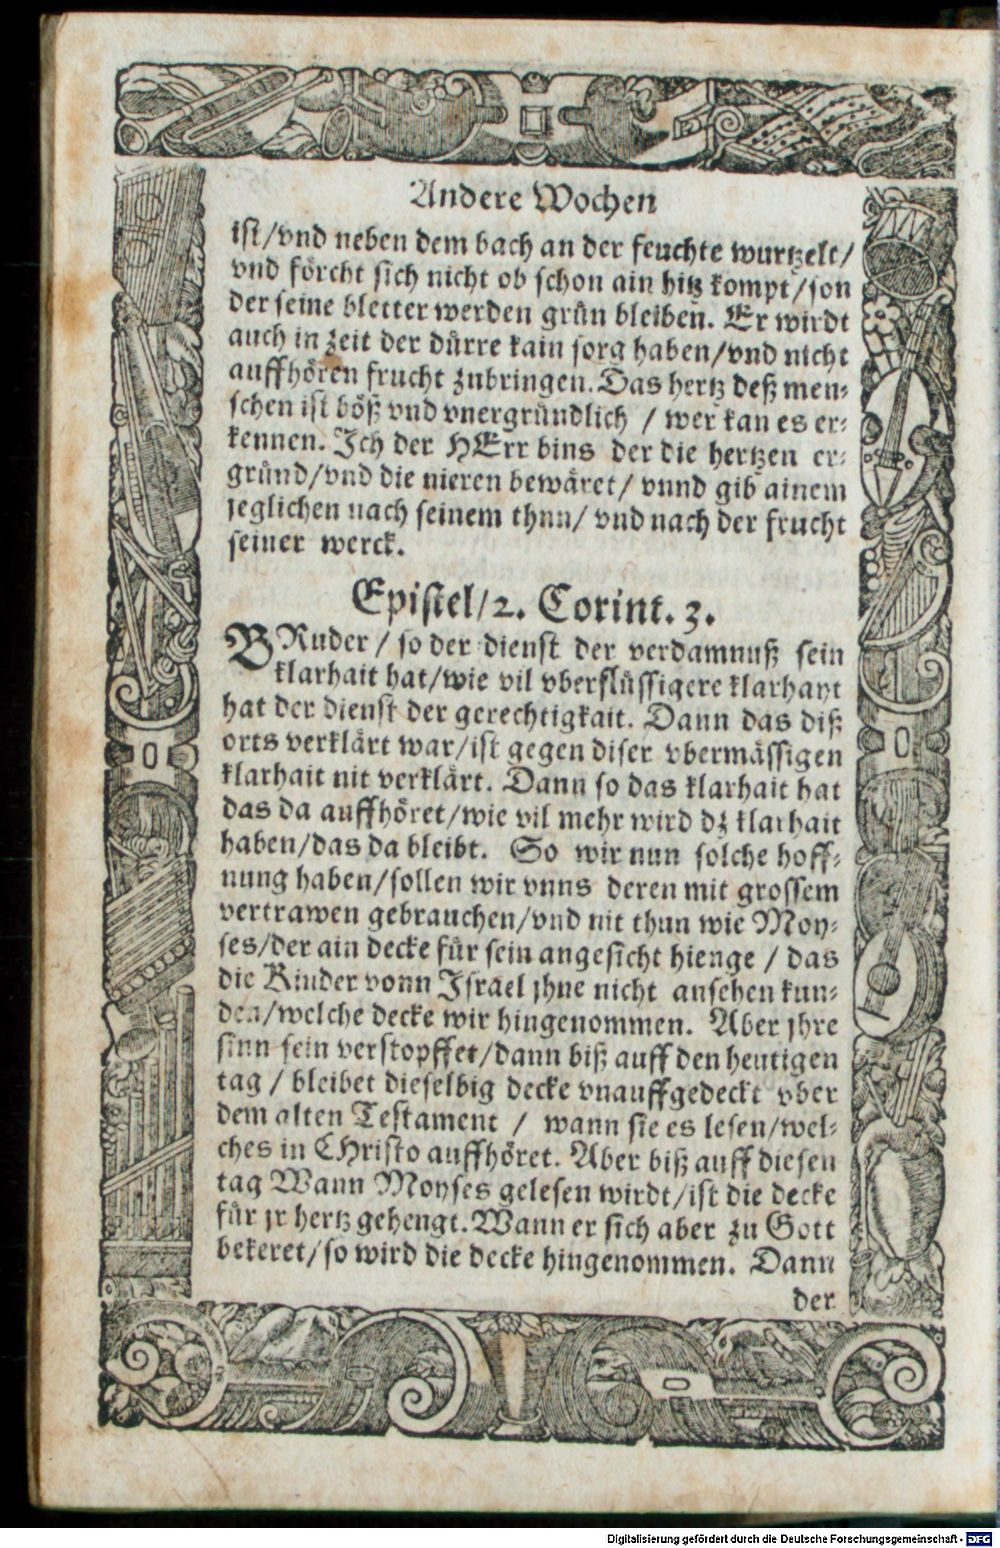 Andere Wochen
ist/vnd neben dem bach an der feuchte wurtzelt/
vnd förcht sich nicht ob schon ain hitz kompt/son
der seine bletter werden grün bleiben. Er wirdt
auch in zeit der dürre kain sorg haben/vnd nicht
auffhören frucht zubringen. Das hertz deß men-
schen ist böß vnd vnergründlich / wer kan es er-
kennen. Ich der HErr bins der die hertzen er-
gründ/vnd die nieren bewäret/ vnnd gib ainem
jeglichen nach seinem thnn/ vnd nach der frucht
seiner werck.
Epistel/2. Corint. 3.
BRuder / so der dienst der verdamnuß sein
klarhait hat/wie vil vberflüssigere klarhayt
hat der dienst der gerechtigkait. Dann das diß
orts verklärt war/ist gegen diser vbermässigen
klarhait nit verklärt. Dann so das klarhait hat
das da auffhöret/wie vil mehr wird dz klarhait
haben/das da bleibt. So wir nun solche hoff-
nung haben/sollen wir vnns deren mit grossem
vertrawen gebrauchen/vnd nit thun wie Moy-
ses/der ain decke für sein angesicht hienge / das
die Kinder vonn Israel jhne nicht ansehen kun-
den/welche decke wir hingenommen. Aber jhre
sinn sein verstopffet/dann biß auff den heutigen
tag / bleibet dieselbig decke vnauffgedeckt vber
dem alten Testament / wann sie es lesen/wel-
ches in CHristo auffhöret. Aber biß auff diesen
tag Wann Moyses gelesen wirdt/ist die decke
für jr hertz gehengt. Wann er sich aber zu Gott
bekeret/so wird die decke hingenommen. Dann
der
Digitalisierung gefördert durch die Deutsche Forschungsgemeinschaft - DFG